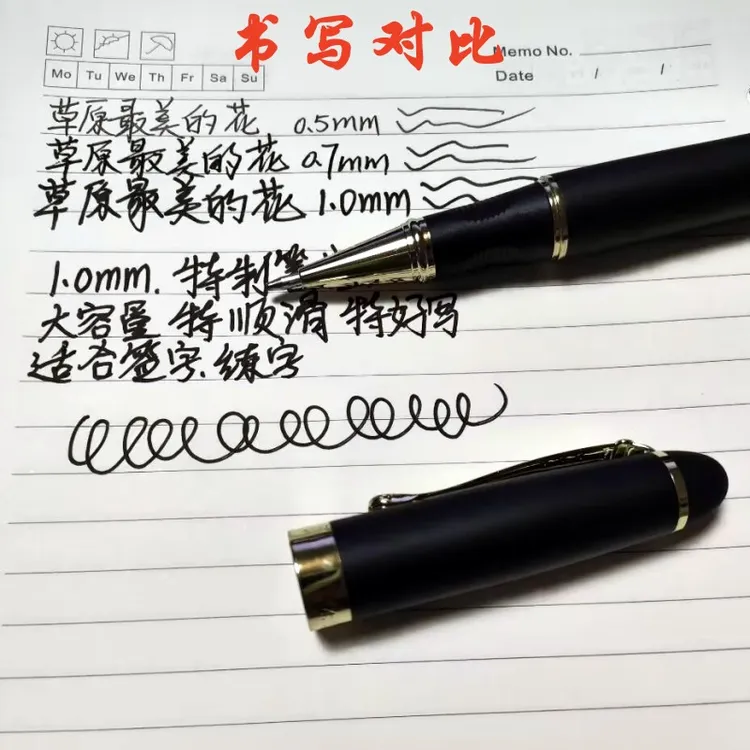 书写对比
Memo No.
Mo Tu We Th Fr Sa Su
Date / /
草原最美的花 0.5mm
草原最美的花 0.7mm
草原最美的花 1.0mm
1.0mm. 特制笔
大容量 特顺滑 特好写
适合签字.练字